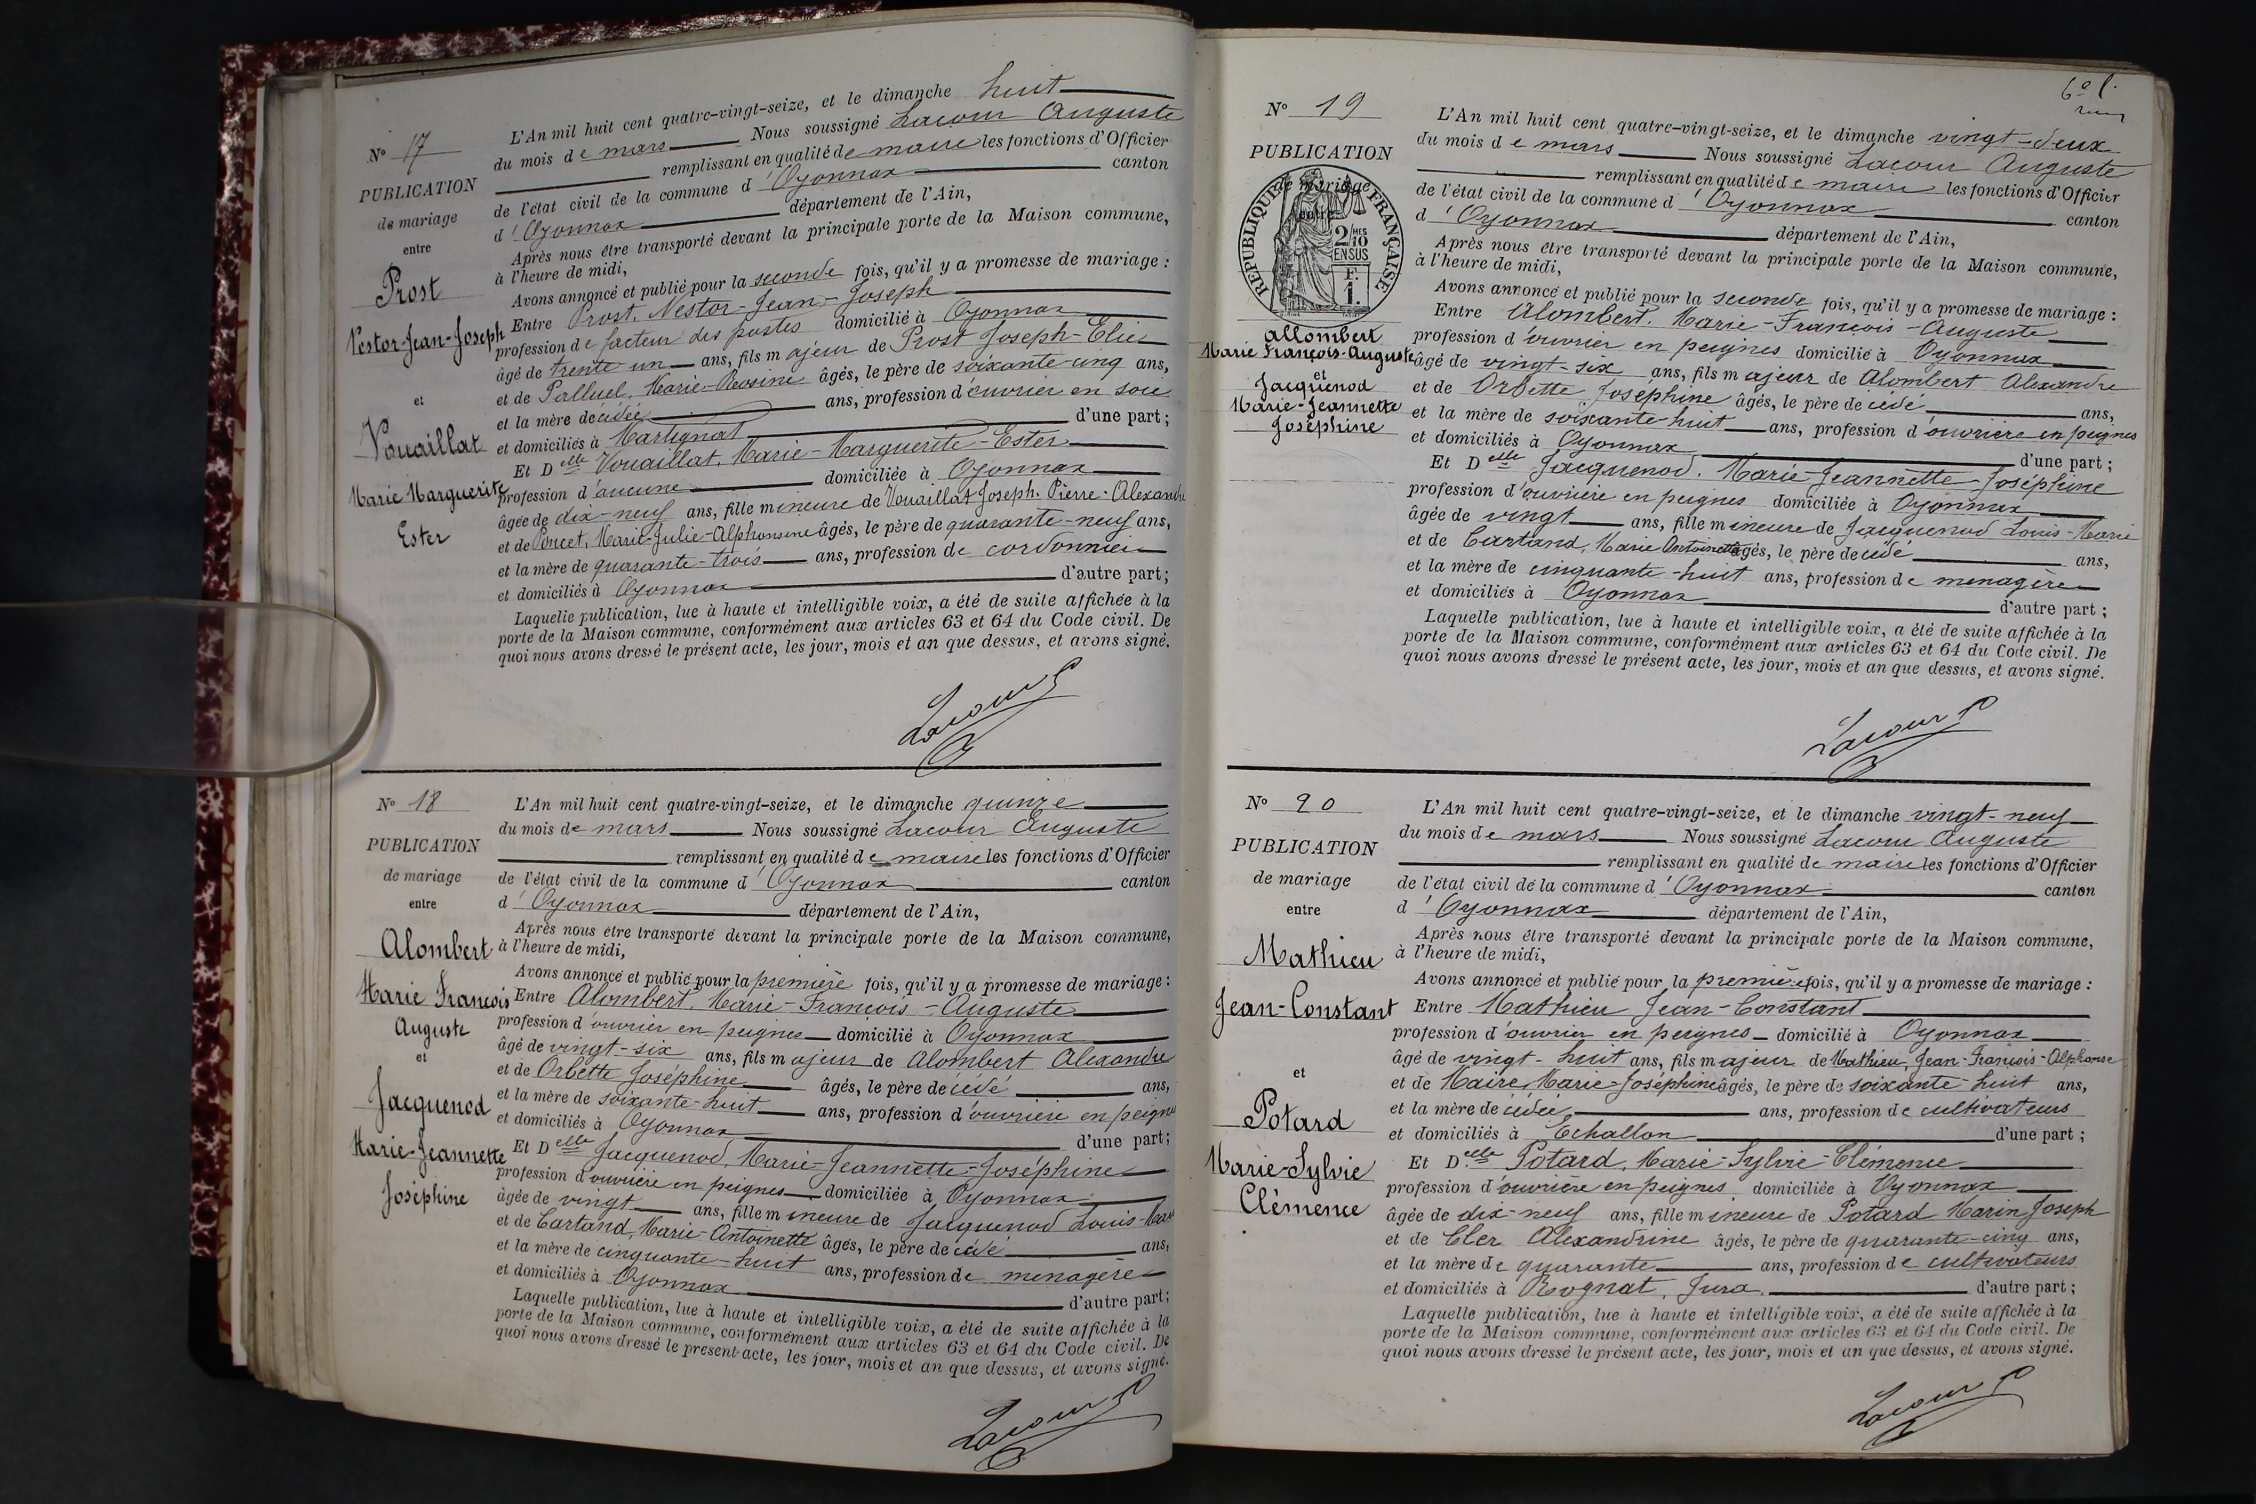 N° 17
PUBLICATION
de mariage
entre
Prost
Nestor-Jean-Joseph
et
Vouaillat
Marie Marguerite
Ester
L'An mil huit cent quatre-vingt-seize, et le dimanche huit
du mois de mars Nous soussigné Lacour Auguste
remplissant en qualité de maire les fonctions d'Officier
de l'état civil de la commune d'Oyonnax canton
d'Oyonnax département de l'Ain,
Après nous être transporté devant la principale porte de la Maison commune,
à l'heure de midi,
Avons annoncé et publié pour la seconde fois, qu'il y a promesse de mariage :
Entre Prost, Nestor-Jean-Joseph
profession de facteur des postes domicilié à Oyonnax
âgé de trente un ans, fils majeur de Prost Joseph-Elie
et de Palluel, Marie-Rosine âgés, le père de soixante-cinq ans,
et la mère décédée ans, profession d'ouvrier en soie
et domiciliés à Martignat d'une part ;
Et Delle Vouaillat, Marie-Marguerite-Ester
profession d'aucune domiciliée à Oyonnax
âgée de dix-neuf ans, fille mineure de Vouaillat Joseph-Pierre-Alexandre
et de Poncet, Marie-Julie-Alphonsine âgés, le père de quarante-neuf ans,
et la mère de quarante-trois ans, profession de cordonnier
et domiciliés à Oyonnax d'autre part ;
Laquelle publication, lue à haute et intelligible voix, a été de suite affichée à la
porte de la Maison commune, conformément aux articles 63 et 64 du Code civil. De
quoi nous avons dressé le présent acte, les jour, mois et an que dessus, et avons signé.
Lacour
N° 18
PUBLICATION
de mariage
entre
Alombert
Marie François
Auguste
et
Jacquenod
Marie-Jeannette
Joséphine
L'An mil huit cent quatre-vingt-seize, et le dimanche quinze
du mois de mars Nous soussigné Lacour Auguste
remplissant en qualité de maire les fonctions d'Officier
de l'état civil de la commune d'Oyonnax canton
d'Oyonnax département de l'Ain,
Après nous être transporté devant la principale porte de la Maison commune,
à l'heure de midi,
Avons annoncé et publié pour la première fois, qu'il y a promesse de mariage :
Entre Alombert, Marie-François-Auguste
profession d'ouvrier en peignes domicilié à Oyonnax
âgé de vingt-six ans, fils majeur de Alombert Alexandre
et de Orbette Joséphine âgés, le père décédé ans,
et la mère de soixante-huit ans, profession d'ouvrière en peignes
et domiciliés à Oyonnax d'une part ;
Et Delle Jacquenod, Marie-Jeannette-Joséphine
profession d'ouvrière en peignes domiciliée à Oyonnax
âgée de vingt ans, fille mineure de Jacquenod Louis-Marie
et de Cartand, Marie-Antoinette âgés, le père décédé ans,
et la mère de cinquante-huit ans, profession de menagère
et domiciliés à Oyonnax d'autre part ;
Laquelle publication, lue à haute et intelligible voix, a été de suite affichée à la
porte de la Maison commune, conformément aux articles 63 et 64 du Code civil. De
quoi nous avons dressé le présent acte, les jour, mois et an que dessus, et avons signé.
Lacour
N° 19
PUBLICATION
de mariage
entre
RÉPUBLIQUE FRANÇAISE
2/10 MES
EN SUS
F.
1.
Allombert
Marie François-Auguste
et
Jacquenod
Marie-Jeannette
Joséphine
6e f.
L'An mil huit cent quatre-vingt-seize, et le dimanche vingt-deux
du mois de mars Nous soussigné Lacour Auguste
remplissant en qualité de maire les fonctions d'Officier
de l'état civil de la commune d'Oyonnax canton
d'Oyonnax département de l'Ain,
Après nous être transporté devant la principale porte de la Maison commune,
à l'heure de midi,
Avons annoncé et publié pour la seconde fois, qu'il y a promesse de mariage :
Entre Alombert, Marie-François-Auguste
profession d'ouvrier en peignes domicilié à Oyonnax
âgé de vingt-six ans, fils majeur de Alombert Alexandre
et de Orbette Joséphine âgés, le père décédé ans,
et la mère de soixante-huit ans, profession d'ouvrière en peignes
et domiciliés à Oyonnax d'une part ;
Et Delle Jacquenod, Marie-Jeannette-Joséphine
profession d'ouvrière en peignes domiciliée à Oyonnax
âgée de vingt ans, fille mineure de Jacquenod Louis-Marie
et de Cartand, Marie Antoinette âgés, le père décédé ans,
et la mère de cinquante-huit ans, profession de menagère
et domiciliés à Oyonnax d'autre part ;
Laquelle publication, lue à haute et intelligible voix, a été de suite affichée à la
porte de la Maison commune, conformément aux articles 63 et 64 du Code civil. De
quoi nous avons dressé le présent acte, les jour, mois et an que dessus, et avons signé.
Lacour
N° 20
PUBLICATION
de mariage
entre
Mathieu
Jean-Constant
et
Potard
Marie-Sylvie
Clémence
L'An mil huit cent quatre-vingt-seize, et le dimanche vingt-neuf
du mois de mars Nous soussigné Lacour Auguste
remplissant en qualité de maire les fonctions d'Officier
de l'état civil de la commune d'Oyonnax canton
d'Oyonnax département de l'Ain,
Après nous être transporté devant la principale porte de la Maison commune,
à l'heure de midi,
Avons annoncé et publié pour la première fois, qu'il y a promesse de mariage :
Entre Mathieu Jean-Constant
profession d'ouvrier en peignes domicilié à Oyonnax
âgé de vingt-huit ans, fils majeur de Mathieu Jean-François-Alphonse
et de Maire, Marie-Joséphine âgés, le père de soixante-huit ans,
et la mère décédée ans, profession de cultivateurs
et domiciliés à Echallon d'une part ;
Et Delle Potard, Marie-Sylvie-Clémence
profession d'ouvrière en peignes domiciliée à Oyonnax
âgée de dix-neuf ans, fille mineure de Potard Marin Joseph
et de Cler Alexandrine âgés, le père de quarante-cinq ans,
et la mère de quarante ans, profession de cultivateurs
et domiciliés à Rognat, Jura d'autre part ;
Laquelle publication, lue à haute et intelligible voix, a été de suite affichée à la
porte de la Maison commune, conformément aux articles 63 et 64 du Code civil. De
quoi nous avons dressé le présent acte, les jour, mois et an que dessus, et avons signé.
Lacour